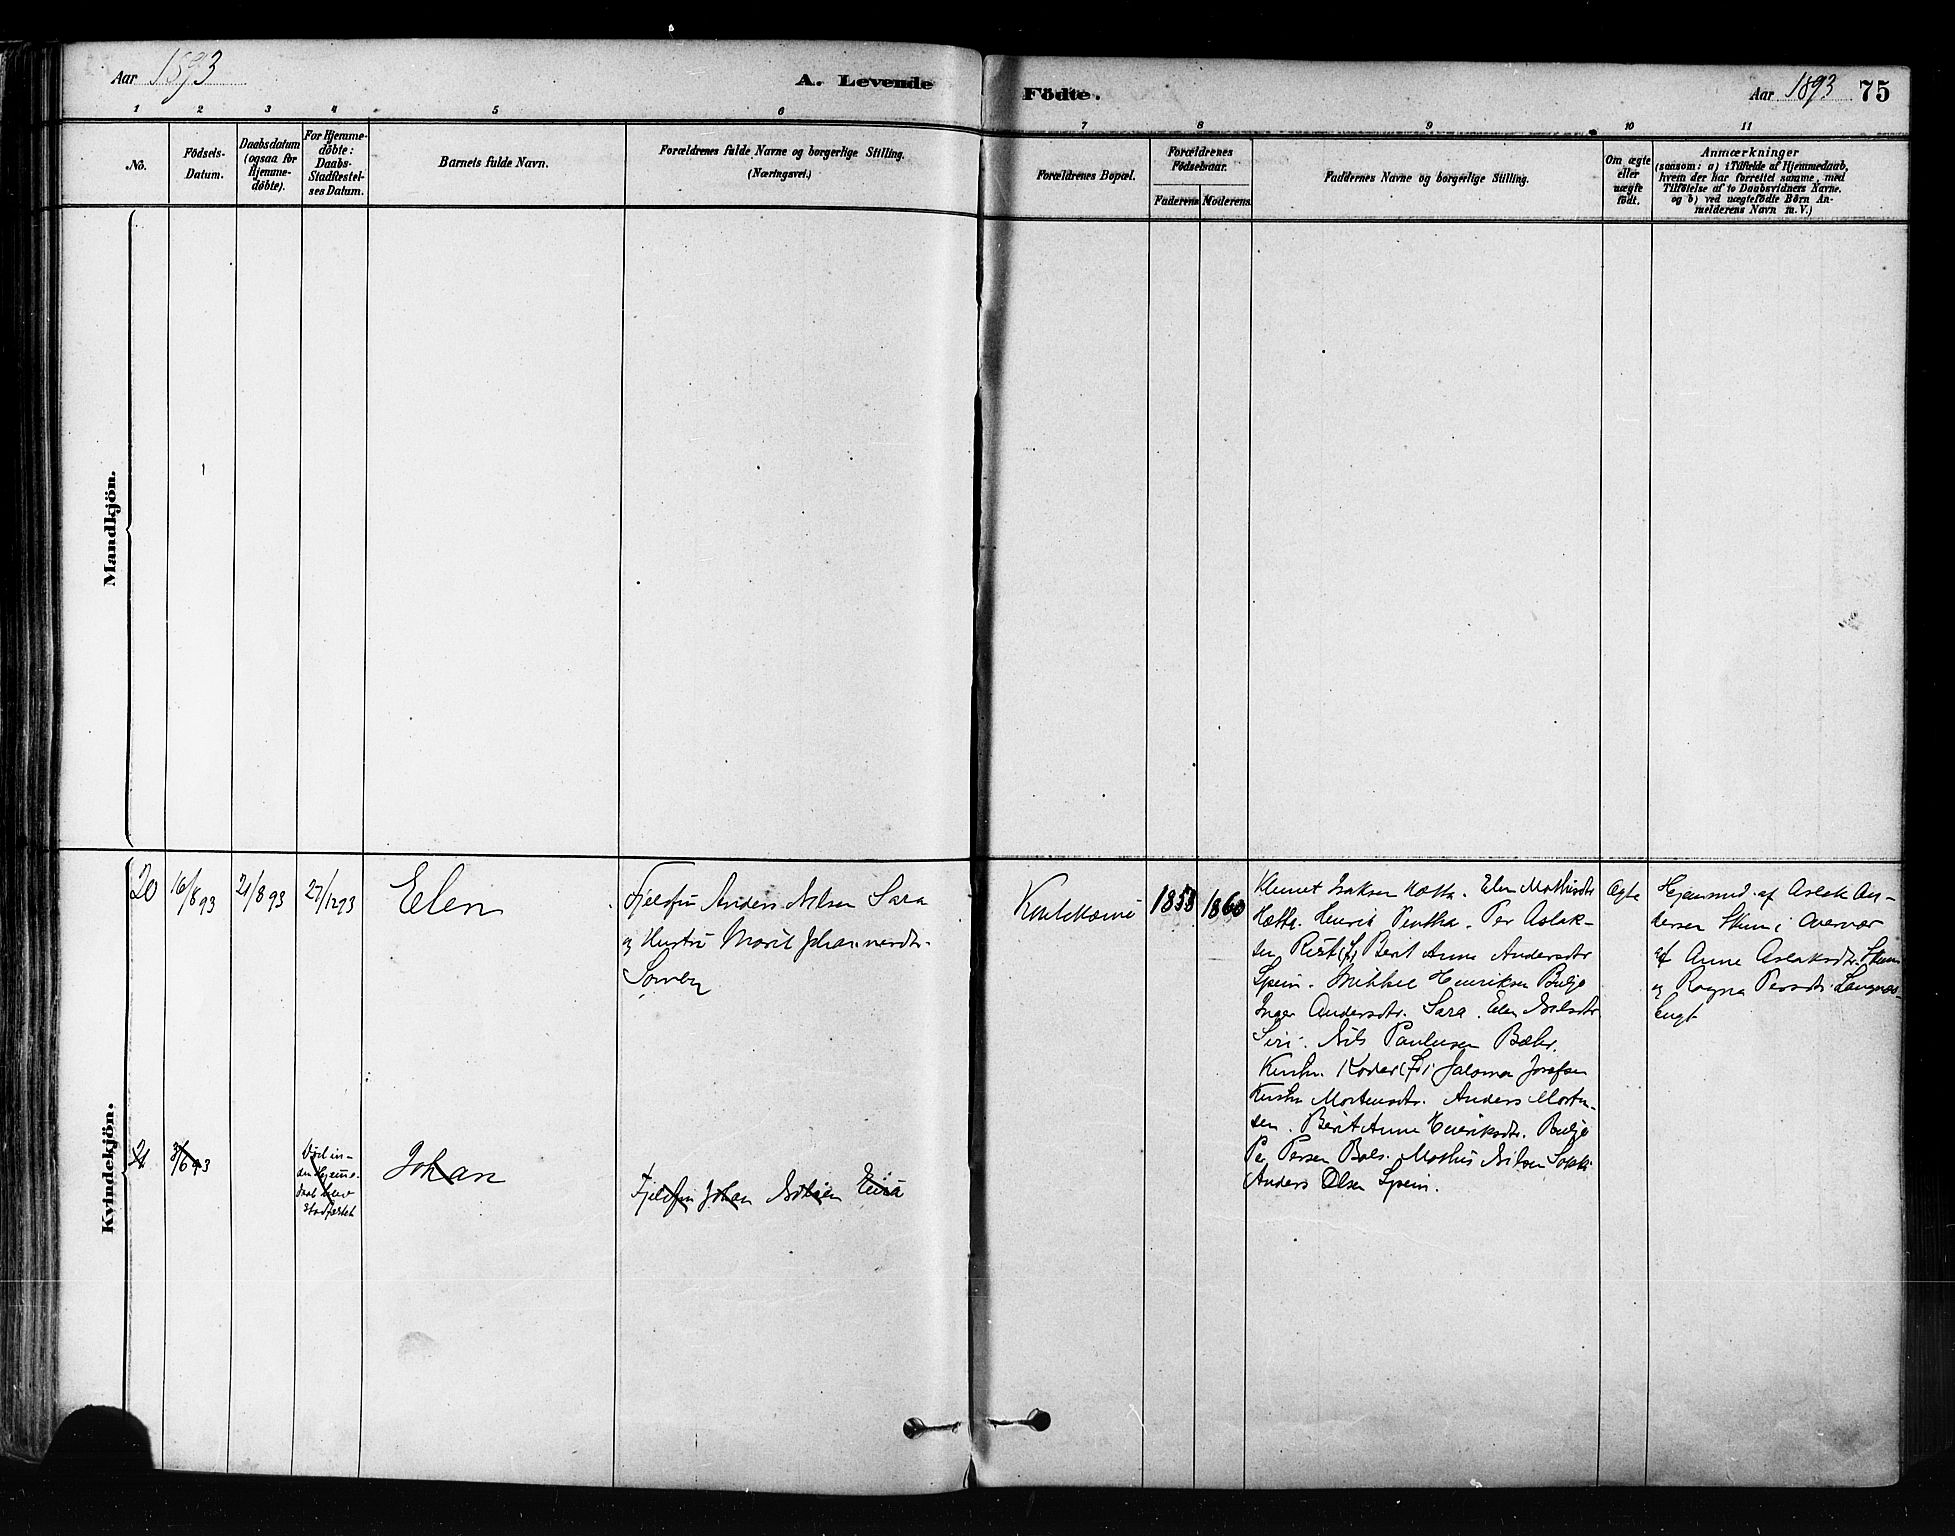 Aar 1893
A. Levende
Födte.
Aar 1893 75
1 2 3 4 5 6 7 8 9 10 11
Nö.
Födsels-
Datum.
Daabsdatum
(ogsaa for
Hjemme-
döbte).
For Hjemme-
döbte:
Daabs-
Stadfæstel-
ses Datum.
Barnets fulde Navn.
Forældrenes fulde Navne og borgerlige Stilling.
(Næringsvei.)
Forældrenes Bopæl.
Forældrenes
Födselsaar.
Faderens Moderens
Faddernes Navne og borgerlige Stilling.
Om ægte
eller
uægte
födt.
Anmærkninger
(saasom: a) i Tilfælde af Hjemmedaab,
hvem der har forrettet samme, med
Tilföielse af to Daabsvidners Navne.
og b) ved uægtefödte Börn An-
melderens Navn m. V.)
Mandkjön.
Kvindekjön.
20
16/8 93
21/8 93
27/12 93
Elen
Fjeldfin Anders Nilsen Sara
og Hustru Marit Johannesdtr.
Somby
1858
1860
Klemet Isaksen Hætta. Elen Mathisdtr
Hætta. Henrik Pentha. Per Aslak-
sen Berit Anne Andersdtr
Spein. Mikkel Henriksen Buljo
Inger Andersdtr. Sara. Elen Nilsdtr
Siri. Nils Paulusen Bæhr.
Josefsen
Mortensdtr. Anders Morten-
sen. Berit Anne Henriksdtr. Buljo
Per Persen Bals. Mathis Nilsen
Anders Olsen Spein.
Ægte
Hjemmed. af Aslak An-
dersen Skum i
af Anne Aslaksdtr. Skum
og Ragna Persdtr. Langnes-
21
8/6 93
stadfæstet
Johan
Fjeldfin Johan